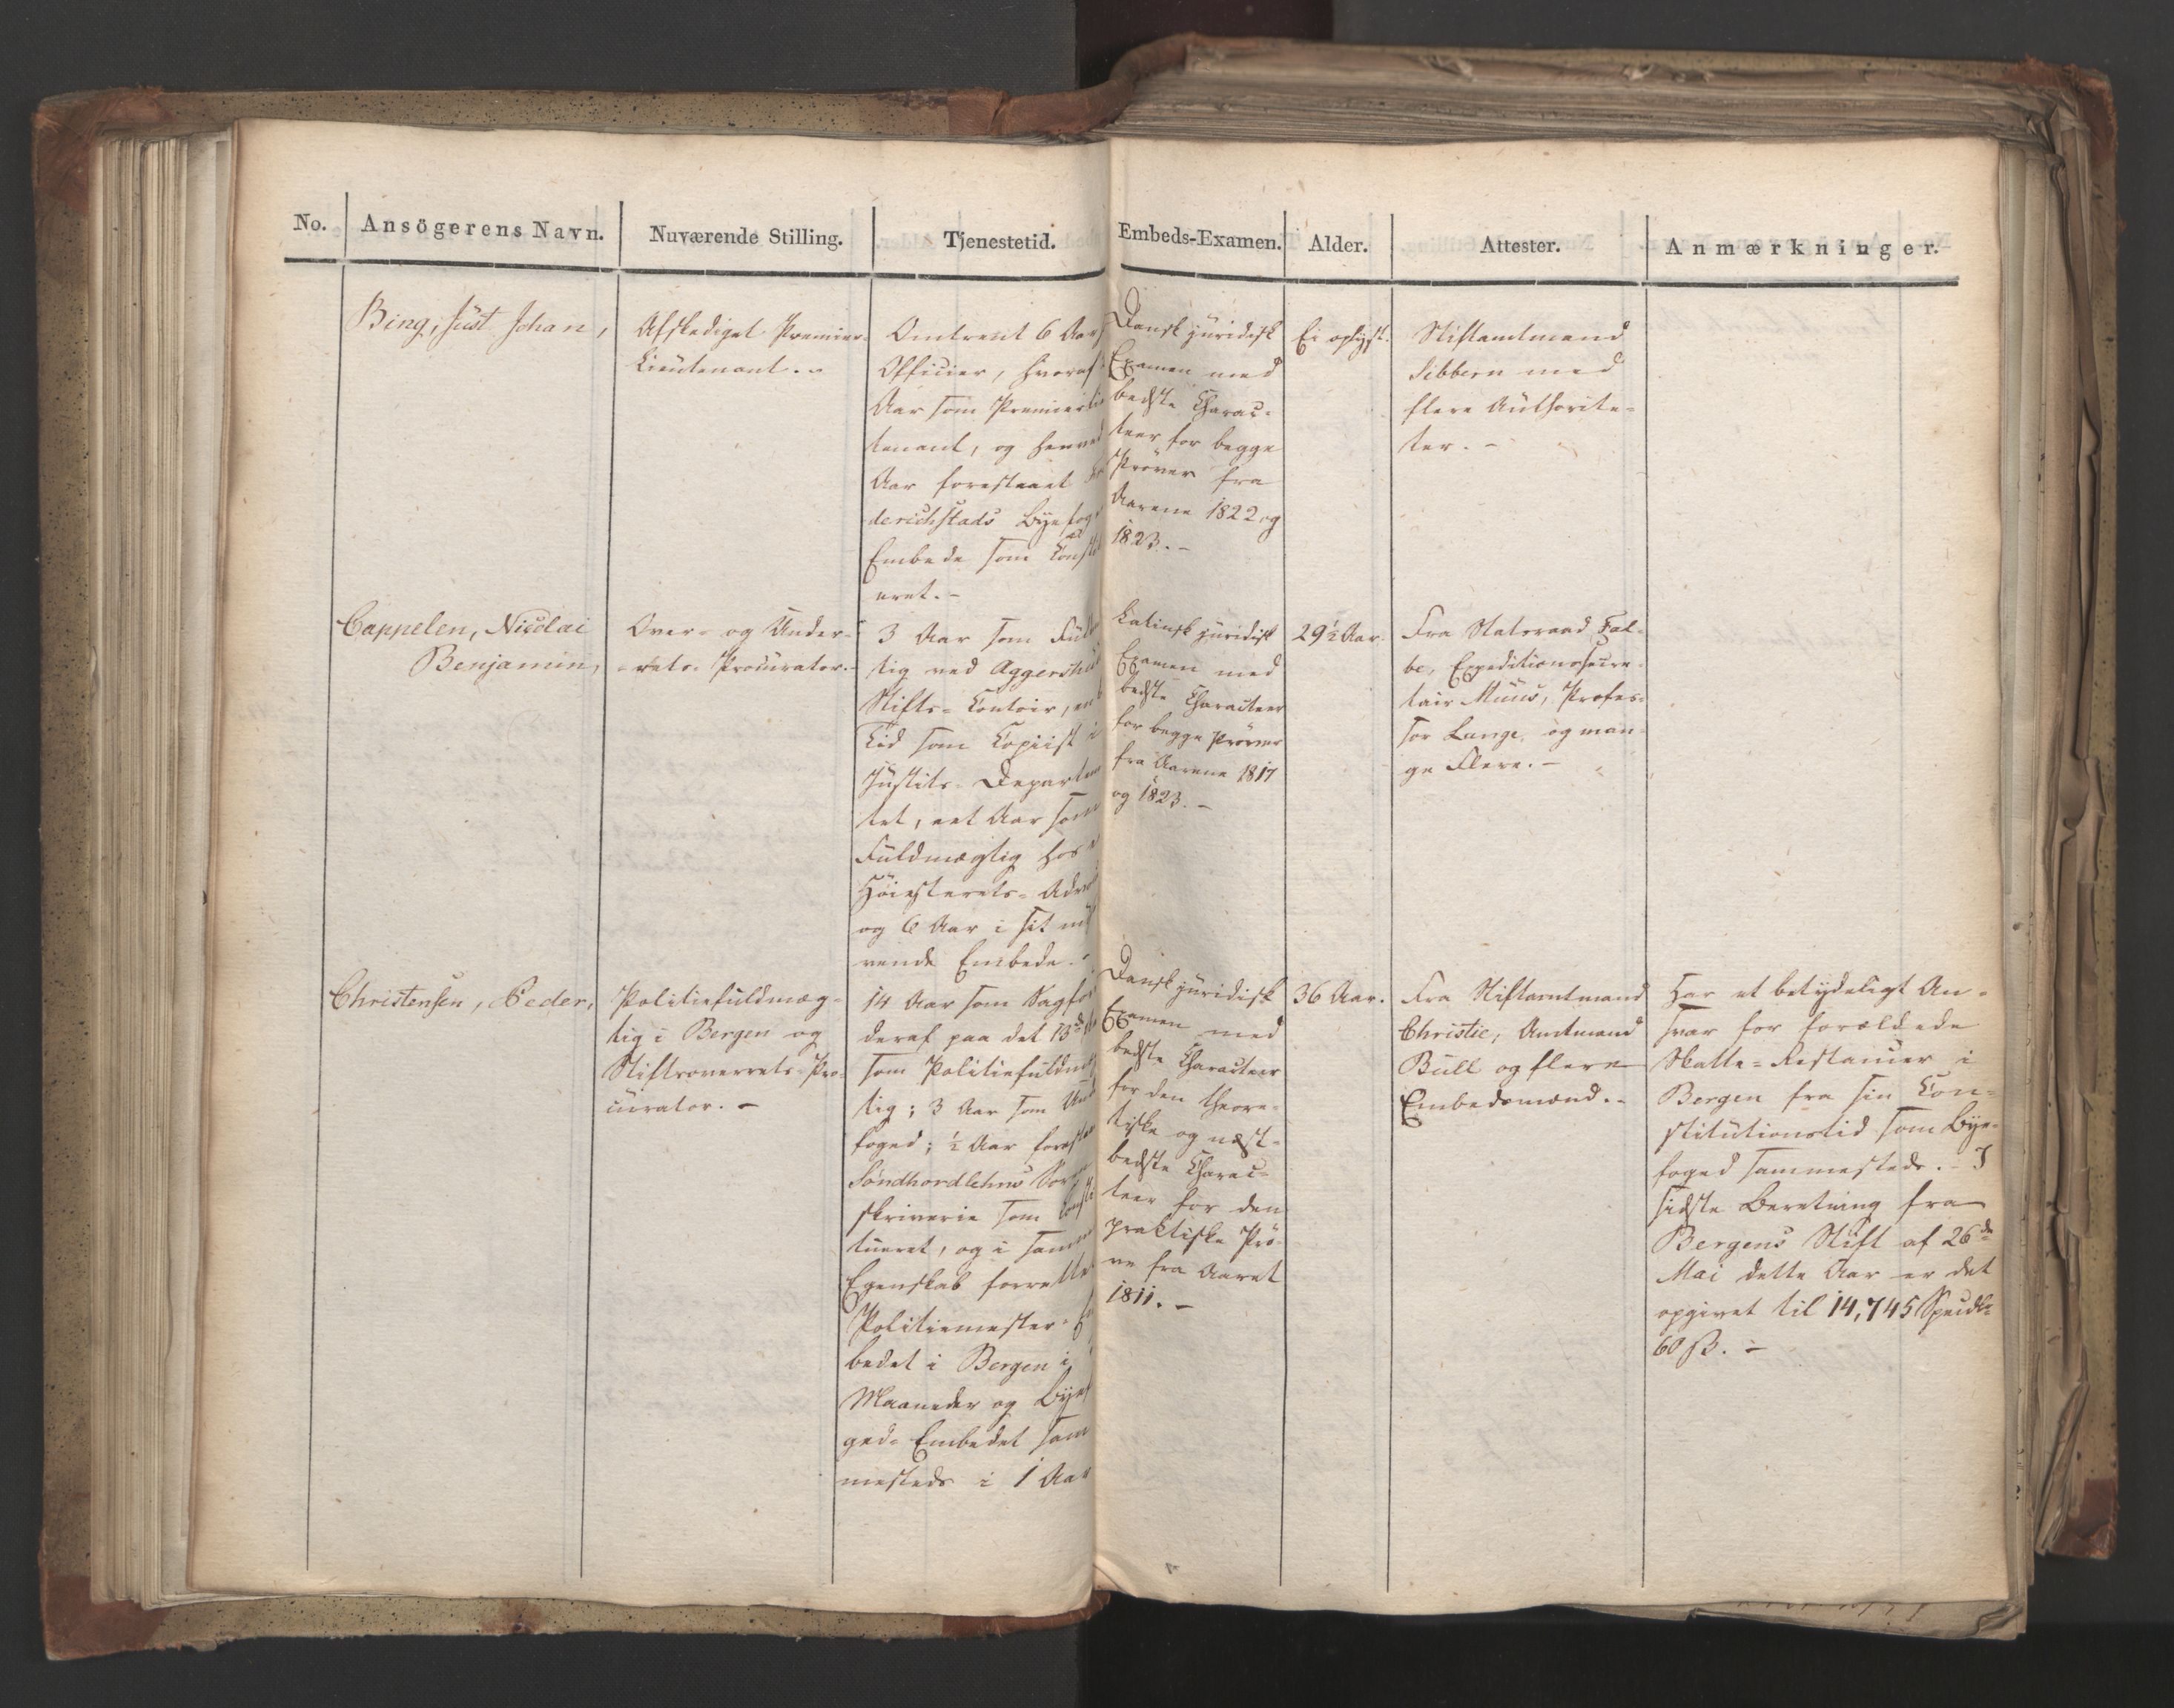 No.
Ansögerens Navn.
Nuværende Stilling.
Tjenestetid.
Embeds-Examen.
Alder.
Attester.
Anmærkninger.
Bing, Just Johan,
Afskediget Premier-
Lieutenant. -
Omtrent 6 Aar
Officier, hvoraf
Aar som Premierlie
tenant, og henved
Aar forestaaet
derichstads Byefog
Embede som Const
eret. -
Dansk juridisk
Examen med
bedste Charac-
teer for begge
Prøver fra
Aarene 1822 og
1823. -
Ei oplyst.
Stiftamtmand
Sibbern med
flere Authorite-
ter. -
Cappelen, Nicolai
Benjamin,
Over- og Under-
-rets-Procurator. -
3 Aar som Fuld
tig ved Aggershuus
Stifts-Contoir, en
Tid som Copiist i
Justits-Departem
tet, eet Aar som
Fuldmægtig hos
Höiesterets-Advo
og 6 Aar i sit nu
rende Embede. -
Latinsk juridisk
Examen med
bedste Characteer
for begge Prøver
fra Aarene 1817
og 1823. -
29½ Aar.
Fra Statsraad Fal-
be, Expeditionssecre-
tair Muus, Profes-
sor Lange, og man-
ge Flere. -
Christensen, Peder,
Politiefuldmæg-
tig i Bergen og
Stiftsoverrets-Pro-
curator. -
14 Aar som Sagför
deraf paa det 13de
som Politiefuldmæg
tig; 3 Aar som Und
foged; ½ Aar forestaa
Söndhordlehns Sor
skriverie som Consti
tueret, og i samme
Egenskab forrettet
Politiemester-Em
bedet i Bergen i
Maaneder og Byef
geds-Embedet sam
mesteds i 1 Aar
Dansk juridisk
Examen med
bedste Characteer
for den theore-
tiske og næst-
bedste Charac-
teer for den
praktiske Prö-
ve fra Aaret
1811. -
36 Aar.
Fra Stiftamtmand
Christie, Amtmand
Bull og flere
Embedsmænd. -
Har et betydeligt An-
svar for forældede
Skatte-Restancer i
Bergen fra sin Con-
stitutionstid som Bye-
foged sammesteds. - I
sidste Beretning fra
Bergens Stift af 26de
Mai dette Aar er det
opgivet til 14,745 Specdlr
60 ß. -